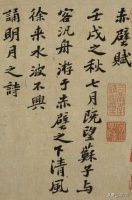 赤壁賦
壬戌之秋七月既望蘇子與
客汎舟游于赤壁之下清風
徐来水波不興
誦明月之詩